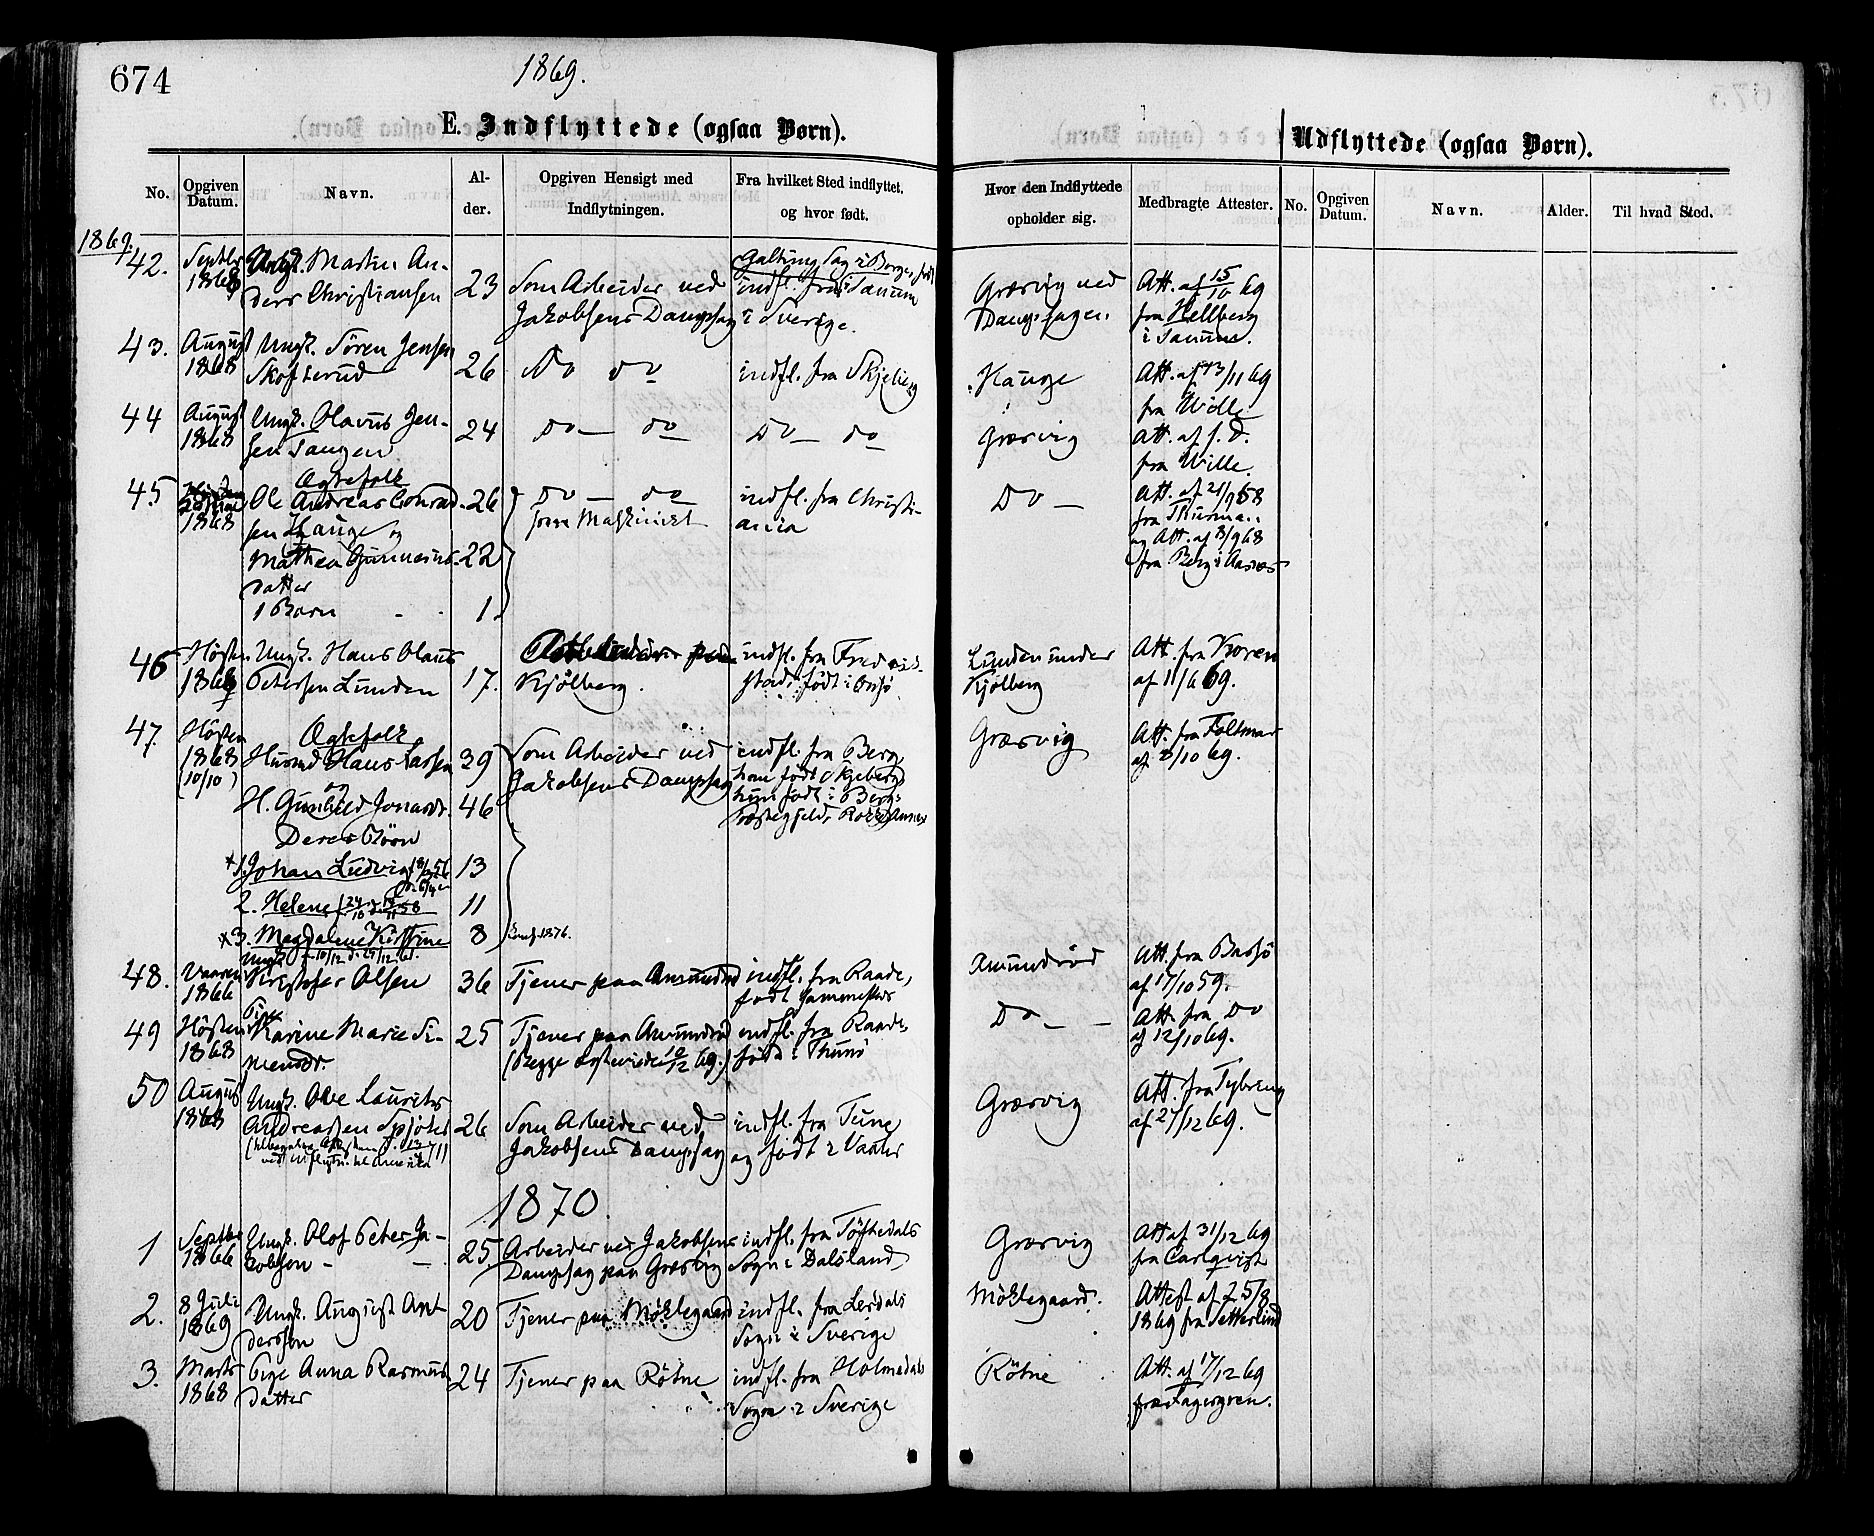 674
1869.
E. Indflyttede (ogsaa Børn).
Udflyttede (ogsaa Børn).
No.
Opgiven Datum.
Navn.
Al-
der.
Opgiven Hensigt med
Indflytningen.
Fra hvilket Sted indflyttet,
og hvor født.
Hvor den Indflyttede
opholder sig.
Medbragte Attester.
No.
Opgiven Datum.
Navn.
Alder.
Til hvad Sted.
1869.
42.
Septbr
1868
Ungk. Martin An-
ders Christiansen
23
Som Arbeider ved
Jakobsens Dampsag
indfl. fra Tanum
i Sverige.
Græsvig ved
Dampsagen.
Att. af 15/10 69
fra Hellberg
i Tanum.
43.
August
1868
Ungk. Sören Jensen
Skofterud
26
Do do
indfl. fra Skjeberg
Hauge
Att. af 13/11 69
fra Wille
44
August
1868
Ungk. Olavus Jen-
sen Tangen
24
Do — do
Do — do
Græsvig
Att. af s. D.
fra Wille.
45
1868
Ægtefolk
Ole Andreas Conrad-
sen Hauge og
Mathea Gunnerius-
datter
1 Barn
26
22
1
Do — do
som Maskinist
indfl. fra Christi-
ania
Do —
Att. af 21/9 68
fra
og Att. af 3/9 68
fra Berg i
46
Høsten
1868
Ungk. Hans Olaus
Petersen Lunden
17.
Kjölberg.
indfl. fra Fredrik-
stad, født i Onsø
Lunden under
Kjölberg
Att. fra Koren
af 11/6 69.
47.
Høsten
1868
(10/10)
Ægtefolk
Husmd Hans Larsen
og
H. Gunhild Jonasdr.
Deres Börn
1. Johan Ludvig
2. Helene f. 24/10 58
3. Magdalene Kistine
39
46
13
11
8
Som Arbeider ved
Jakobsens Dampsag
Conf. 1876.
indfl. fra Berg,
han født i Skjeberg
hun født i Bergs
Præstegjeld,
Græsvig
Att. fra Foltmar
af 2/10 69.
48.
Vaaren
1866
Ungk.
Kristofer Olsen
36
Tjener paa Amundrød
indfl. fra Raade,
født
Amundrød
Att. fra
af 17/10 59.
49
Høsten
1868
Pige
Karine Marie Si-
mensdr.
25
Tjener paa Amundrød
indfl. fra Raade,
født i
Do — —
Att. fra Do
af 12/10 69.
50
August
1868
Ungk. Ole Laurits
Andreassen Spjøtvld
26
Som Arbeider ved
Jakobsens Dampsag
indfl. fra Tune
og født i Vaaler
Græsvig
Att. fra Tybring
af 27/12 69.
1870.
1
Septbr
1866
Ungk. Olof Peter Ja-
kobson —
25
Arbeider ved Jakobsens
Dampsag paa Græsvig
indfl. fra Töftedals
Sogn i Dalsland,
Græsvig
Att af 31/12 69
fra Carlqvist
2.
8 Juli
1869
Ungk. August An-
dersson
20
Tjener paa Möklegaard
indfl. fra Lerdals
Sogn i Sverige
Möklegaard.
Attest af 25/8
1869 fra Setterlund
3.
Marts
1868
Pige Anna Rasmus-
datter
24
Tjener paa Rötne
indfl. fra Holmedals
Sogn i Sverige
Rötne
Att. af 17/12 69
fra Fagergren.